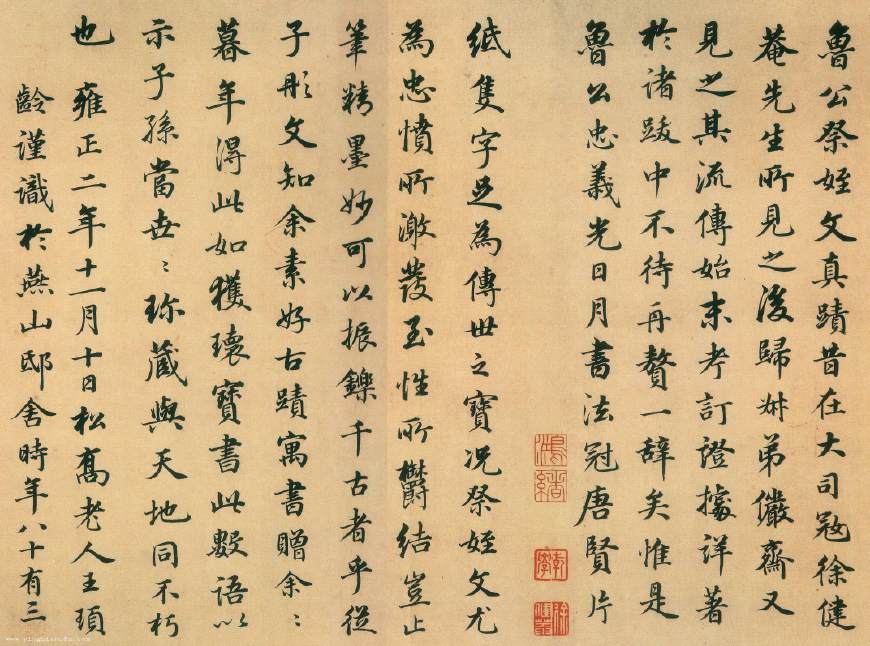 魯公祭姪文真蹟昔在大司寇徐健
菴先生所見之後歸叔弟儼齋又
見之其流傳始末考訂證據詳著
於諸跋中不待再贅一辭矣惟是
魯公忠義光日月書法冠唐賢片
紙隻字足為傳世之寶況祭姪文尤
為忠憤所激發至性所鬱結豈止
筆精墨妙可以振鑠千古者乎從
子彤文知余素好古蹟寓書贈余〻
暮年得此如獲瓌寶書此數語以
示子孫當世〻珎藏與天地同不朽
也雍正二年十一月十日松喬老人王頊
齡謹識於燕山邸舍時年八十有三